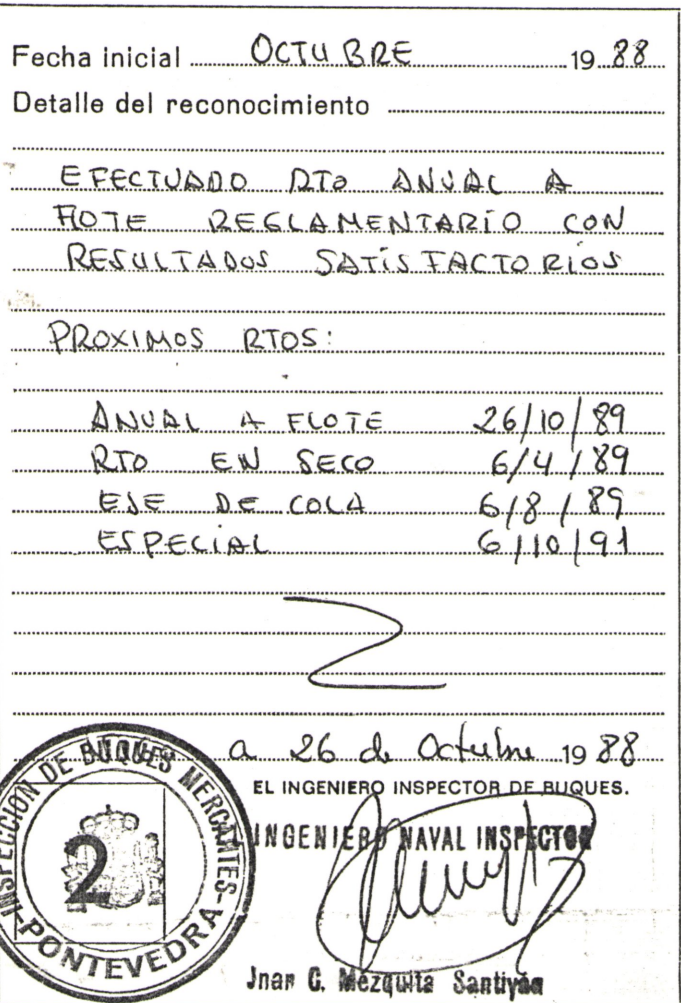 Fecha inicial OCTUBRE 19 88
Detalle del reconocimiento
EFECTUADO RTO ANUAL A
FLOTE REGLAMENTARIO CON
RESULTADOS SATISFACTORIOS
PROXIMOS RTOS:
ANUAL A FLOTE 26/10/89
RTO EN SECO 6/4/89
EJE DE COLA 6/8/89
ESPECIAL 6/10/91
a 26 de Octubre 19 88
EL INGENIERO INSPECTOR DE BUQUES.
INGENIERO NAVAL INSPECTOR
Jnan C. Mezquita Santiyán
INSPECCION DE BUQUES MERCANTES-
-PONTEVEDRA-
2